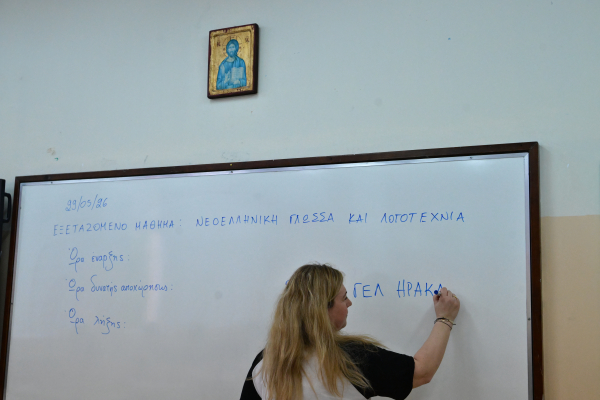 29/05/26
ΕΞΕΤΑΖΟΜΕΝΟ ΜΑΘΗΜΑ: ΝΕΟΕΛΛΗΝΙΚΗ ΓΛΩΣΣΑ ΚΑΙ ΛΟΓΟΤΕΧΝΙΑ
Ώρα έναρξης:
Ώρα δυνατής αποχώρησης:
ΓΕΛ ΗΡΑΚΛ
Ώρα λήξης: